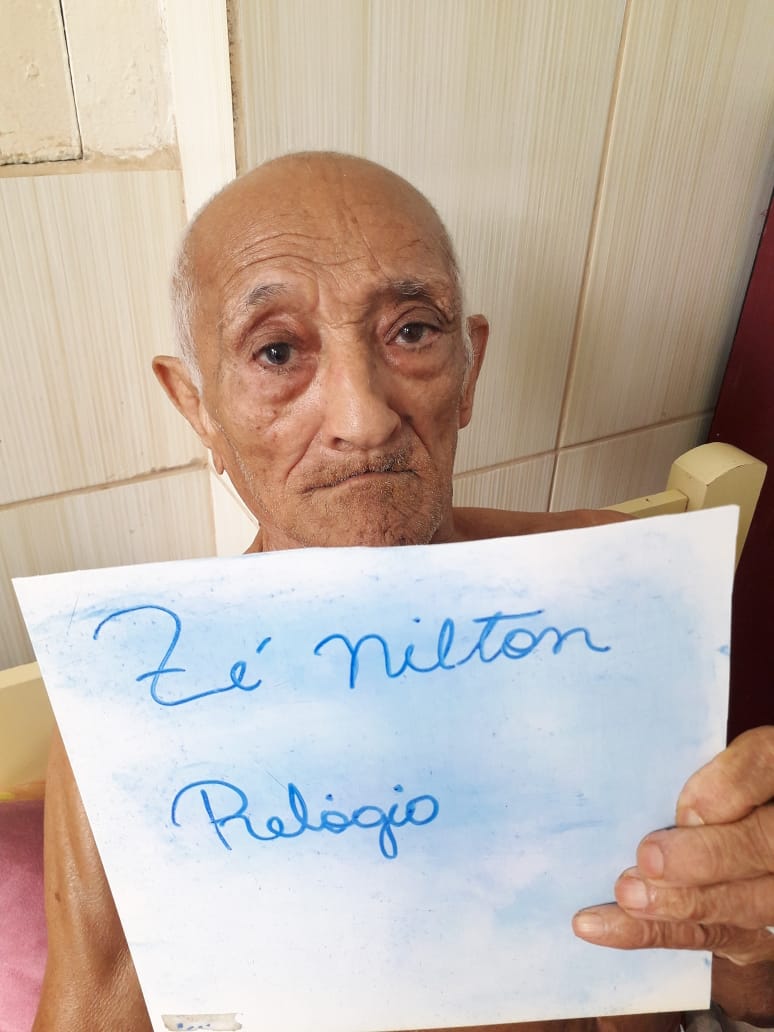 Zé Nilton
Relógio